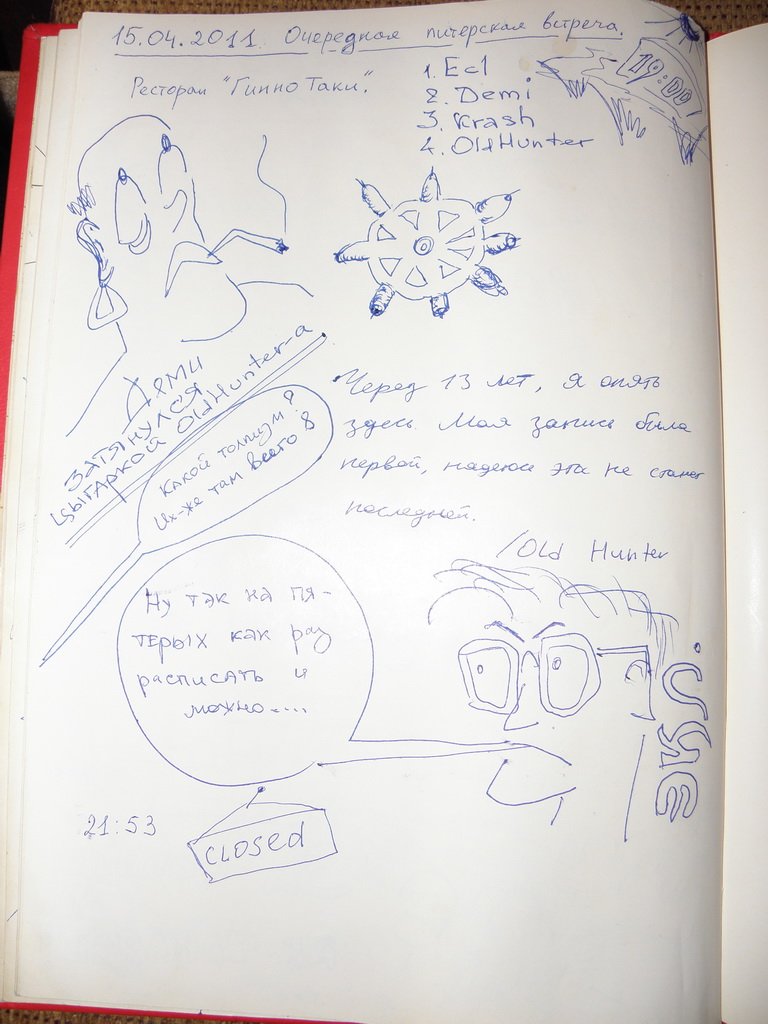 15.04.2011. Очередная питерская встреча.
19:00
Ресторан "Гиппо Таки".
1. Ecl
2. Demi
3. Krash
4. OldHunter
Дями
затянулся
цыгаркой OldHunter-а
Какой толпизм?
Их-же там всего 8
Через 13 лет, я опять
здесь. Моя запись была
первой, надеюсь эта не станет
последней.
/Old Hunter
Ну так на пя-
терых как раз
расписать и
можно....
Экл.
21:53
CLOSED